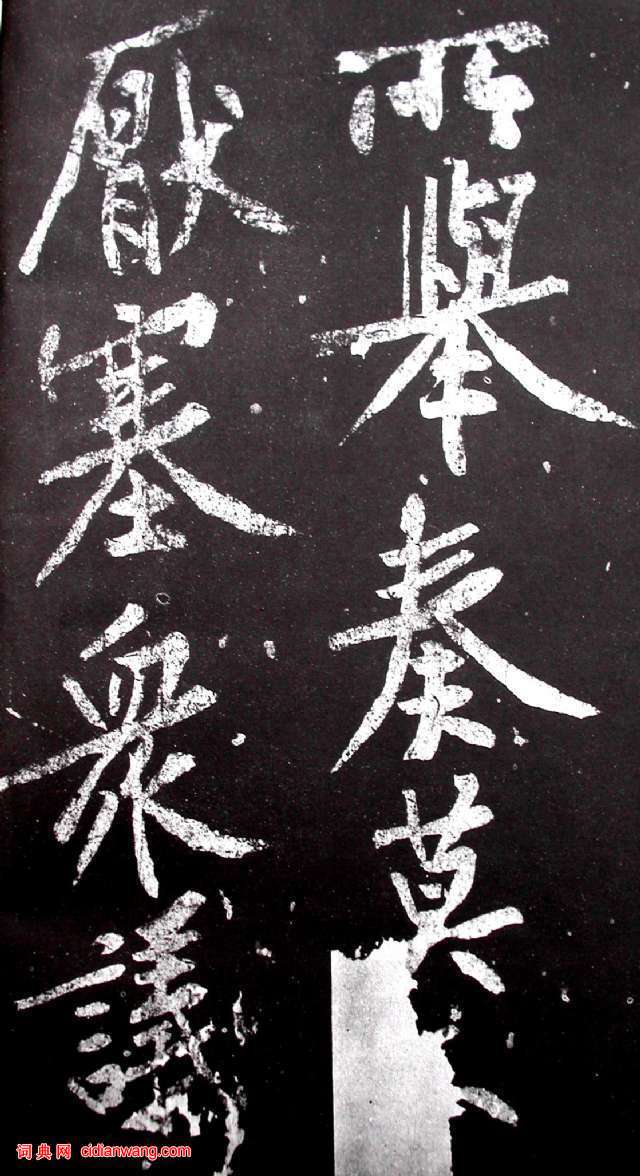 所舉奏莫
厭塞眾議
词典网 cidianwang.com